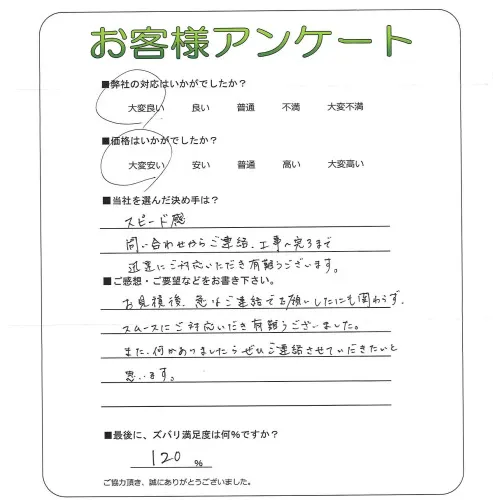 お客様アンケート
■弊社の対応はいかがでしたか？
大変良い 良い 普通 不満 大変不満
■価格はいかがでしたか？
大変安い 安い 普通 高い 大変高い
■当社を選んだ決め手は？
スピード感
問い合わせからご連絡、工事へ完了まで
迅速にご対応いただき有難うございます。
■ご感想・ご要望などをお書き下さい。
お見積後、急なご連絡でお願いしたにも関わらず、
スムースにご対応いただき有難うございました。
また、何かありましたらぜひご連絡させていだきたいと
思います。
■最後に、ズバリ満足度は何%ですか？
120 %
ご協力頂き、誠にありがとうございました。